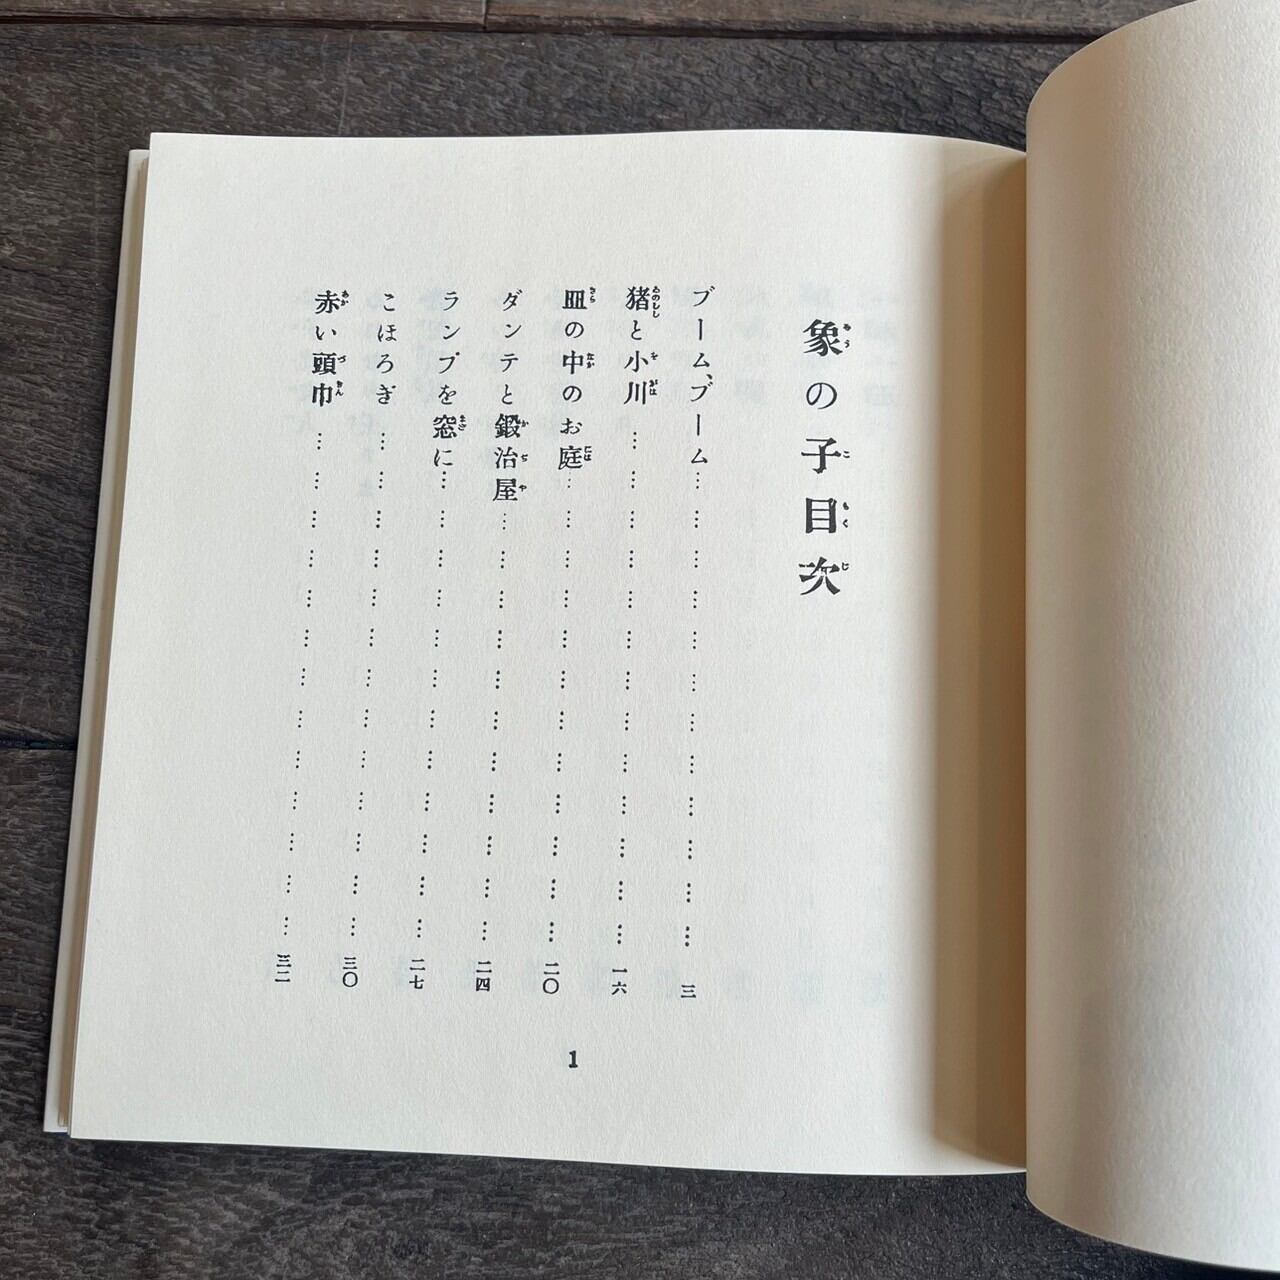 象の子目次
ブーム、ブーム………………………………三
猪と小川………………………………一六
皿の中のお庭………………………………二〇
ダンテと鍛治屋………………………………二四
ランプを窓に………………………………二七
こほろぎ………………………………三〇
赤い頭巾………………………………三二
1